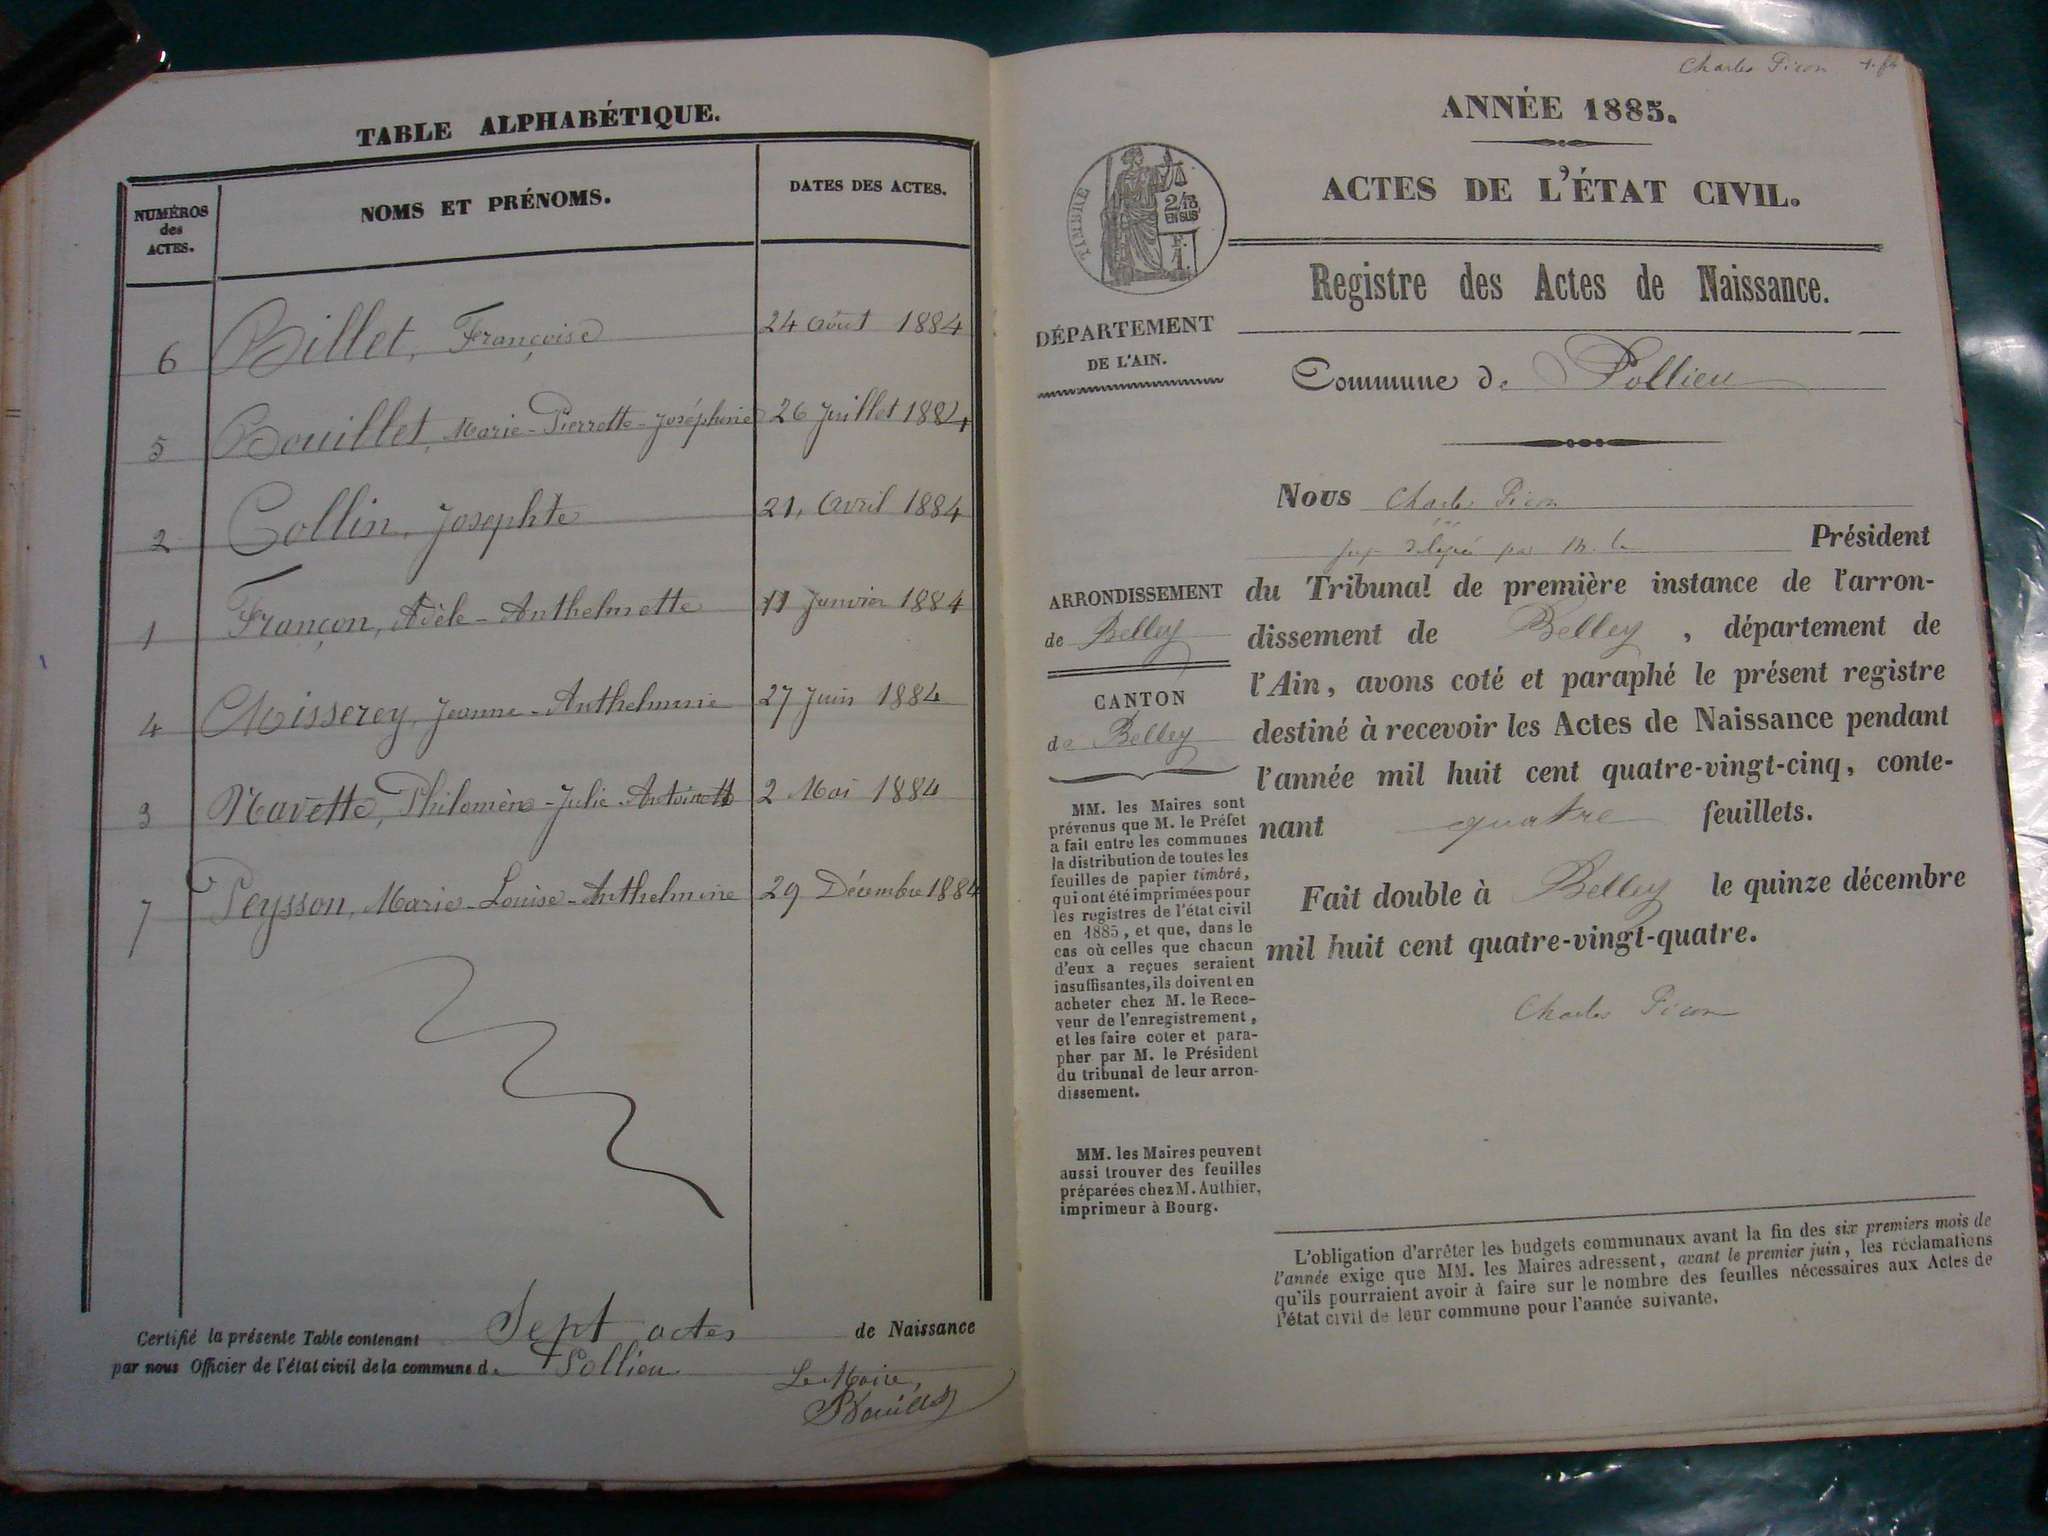 TABLE ALPHABÉTIQUE.
NUMÉROS
des
ACTES.
NOMS ET PRÉNOMS.
DATES DES ACTES.
6 Billet, Françoise 24 août 1884
5 Bouillet, Marie-Pierrette-Joséphine 26 Juillet 1884
2 Collin, Josephte 21, avril 1884
1 Françon, Adèle-Anthelmette 11 Janvier 1884
4 Misserey, Jeanne-Anthelmine 27 Juin 1884
3 Navette, Philomène-Julie-Antoinette 2 Mai 1884
7 Peysson, Marie-Louise-Anthelmine 29 Décembre 1884
Certifié la présente Table contenant Sept actes de Naissance
par nous Officier de l'état civil de la commune de Pollieu
Le Maire,
Bouillet
Charles Picon
ANNÉE 1885.
ACTES DE L'ÉTAT CIVIL.
TIMBRE
2/10
EN SUS
F.
1.
Registre des Actes de Naissance.
DÉPARTEMENT
DE L'AIN.
Commune de Pollieu
Nous Charles Picon
juge délégué par M. le Président
du Tribunal de première instance de l'arron-
dissement de Belley, département de
l'Ain, avons coté et paraphé le présent registre
destiné à recevoir les Actes de Naissance pendant
l'année mil huit cent quatre-vingt-cinq, conte-
nant quatre feuillets.
Fait double à Belley le quinze décembre
mil huit cent quatre-vingt-quatre.
Charles Picon
ARRONDISSEMENT
de Belley
CANTON
de Belley
MM. les Maires sont
prévenus que M. le Préfet
a fait entre les communes
la distribution de toutes les
feuilles de papier timbré,
qui ont été imprimées pour
les registres de l'état civil
en 1885, et que, dans le
cas où celles que chacun
d'eux a reçues seraient
insuffisantes, ils doivent en
acheter chez M. le Rece-
veur de l'enregistrement,
et les faire coter et para-
pher par M. le Président
du tribunal de leur arron-
dissement.
MM. les Maires peuvent
aussi trouver des feuilles
préparées chez M. Authier,
imprimeur à Bourg.
L'obligation d'arrêter les budgets communaux avant la fin des six premiers mois de
l'année exige que MM. les Maires adressent, avant le premier juin, les réclamations
qu'ils pourraient avoir à faire sur le nombre des feuilles nécessaires aux Actes de
l'état civil de leur commune pour l'année suivante.